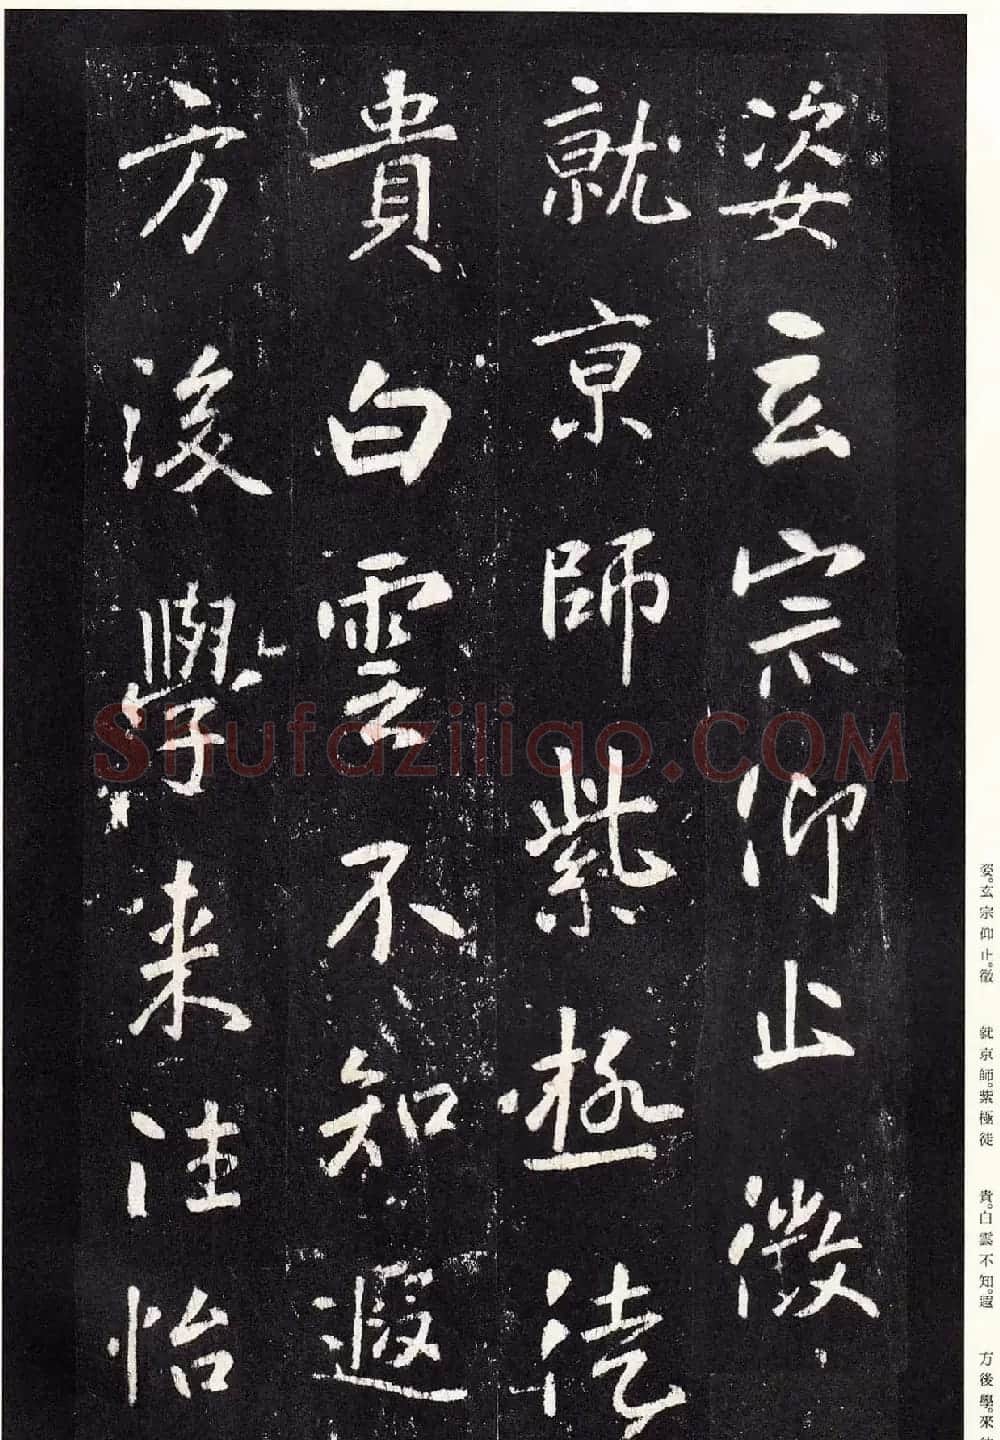 姿玄宗仰止徵
就京師紫極徒
貴白雲不知遐
方後學來往怡
Shufaziliao.COM
姿。玄宗仰止。徵
就京師。紫極徒
貴。白雲不知。遐
方後學。來